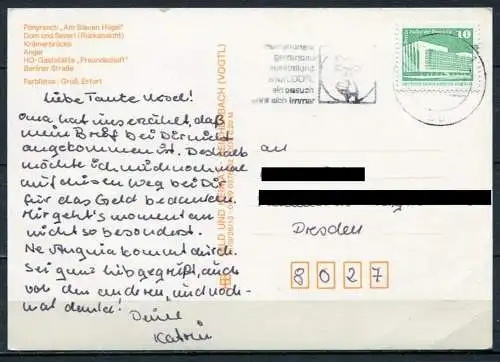 Ponyranch „Am Blauen Hügel"
Dom und Severi (Rückansicht)
Krämerbrücke
Anger
HO-Gaststätte „Freundschaft"
Berliner Straße
Farbfotos: Groß, Erfurt
Liebe Tante
Oma hat uns erzählt, daß
mein Brief bei Dir nicht
angekommen ist. Deshalb
möchte ich mich nochmal
auf diesen Weg bei Dir
für das Geld bedanken.
Mir geht's momentan
nicht so besonders.
Ne Angina kommt durch.
Sei ganz lieb gegrüßt, auch
von den anderen, und noch-
mal danke!
Deine
Katrin
BILD UND REICHENBACH (VOGTL)
10
an
Dresden
8027